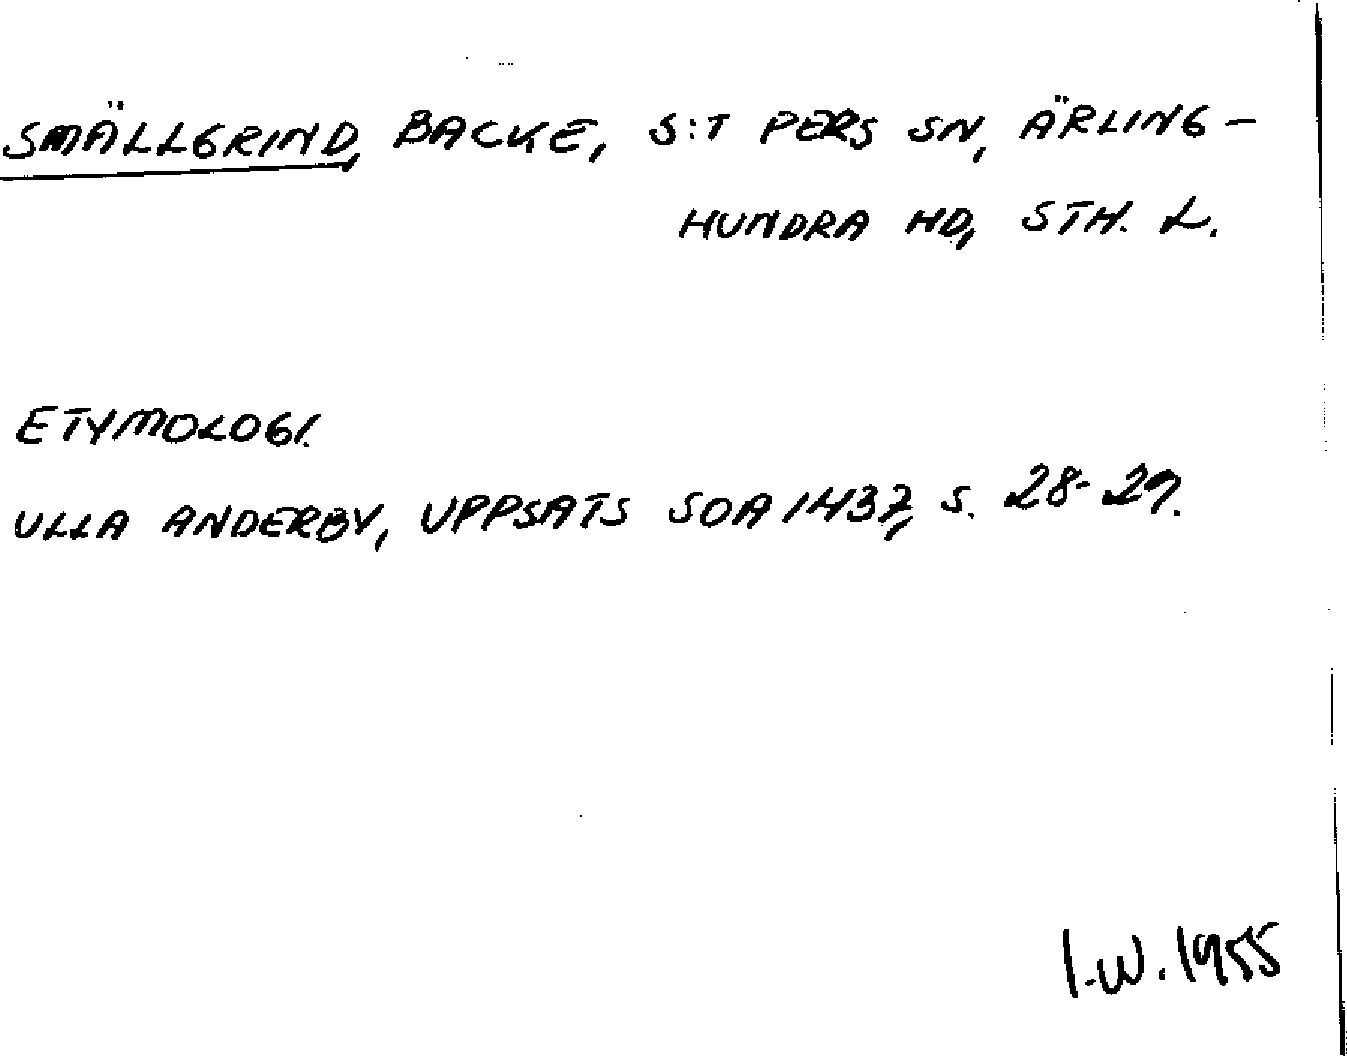 SMÄLLGRIND, BACKE, S:T PERS SN, ÄRLING-
HUNDRA HD, STH. L.
ETYMOLOGI.
ULLA ANDERBY, UPPSATS SOA 1437, S. 28-29.
I.W. 1955